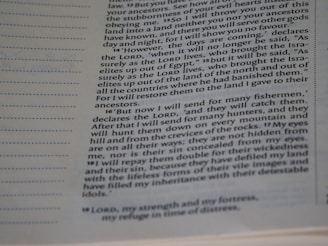 law. ¹²But you have
your ancestors. See how all of
the stubbornness of your evil hearts instead of
obeying me. ¹³So I will throw you out of this
land into a land neither you nor your ancestors
have known, and there you will serve other gods
day and night, for I will show you no favor.'
¹⁴"However, the days are coming," declares
the LORD, "when it will no longer be said, 'As
surely as the LORD lives, who brought the Isra-
elites up out of Egypt,' ¹⁵but it will be said, 'As
surely as the LORD lives, who brought the Isra-
elites up out of the land of the north and out of
all the countries where he had banished them.'
For I will restore them to the land I gave to their
ancestors.
¹⁶"But now I will send for many fishermen,"
declares the LORD, "and they will catch them.
After that I will send for many hunters, and they
will hunt them down on every mountain and
hill and from the crevices of the rocks. ¹⁷My eyes
are on all their ways; they are not hidden from
me, nor is their sin concealed from my eyes.
¹⁸I will repay them double for their wickedness
and their sin, because they have defiled my land
with the lifeless forms of their vile images and
have filled my inheritance with their detestable
idols."
¹⁹LORD, my strength and my fortress,
my refuge in time of distress,